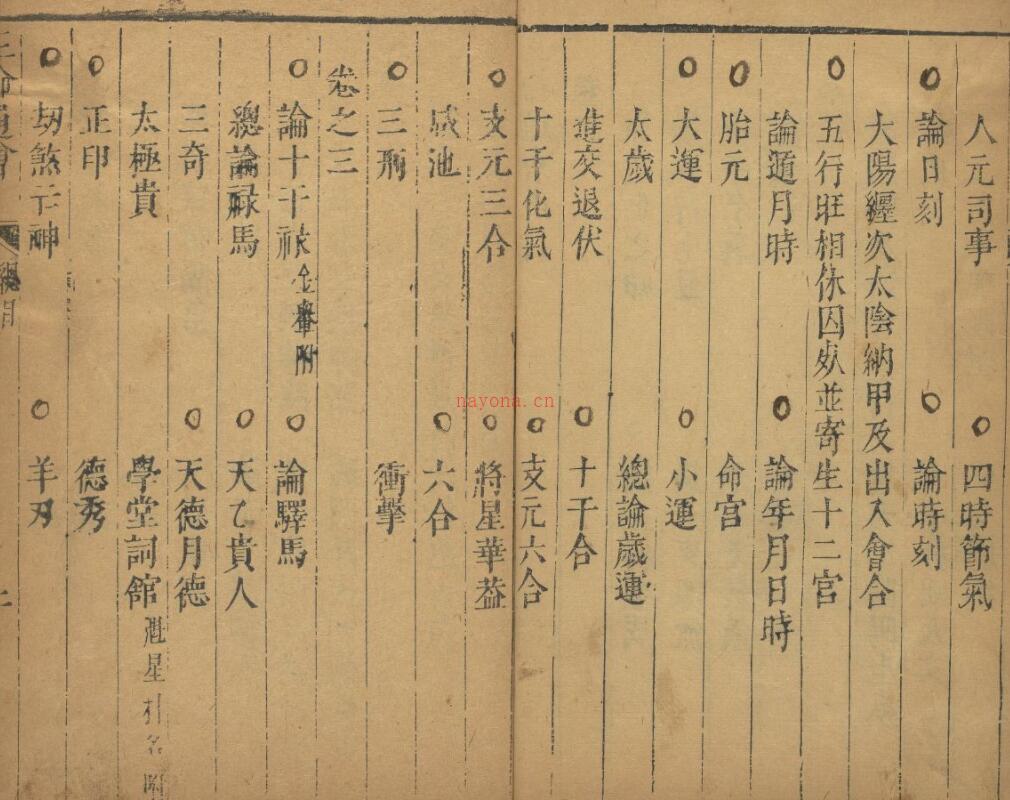 人元司事 ○四時節氣
○論日刻 ○論時刻
大陽纏次太陰納甲及出入會合
○五行旺相休囚死並寄生十二宮
論遁月時 ○論年月日時
○胎元 命宮
○大運 ○小運
太歲 總論歲運
進交退伏 ○十干合
十干化氣 ○支元六合
○支元三合 ○將星華葢
咸池 ○六合
○三刑 衝擊
卷之三
○論十干祿金轝附 ○論驛馬
總論祿馬 ○天乙貴人
三奇 ○天德月德
太極貴 學堂詞館魁星 名附
○正印 德秀
○刼煞亡神 ○羊刃
三命通會
nayona.cn